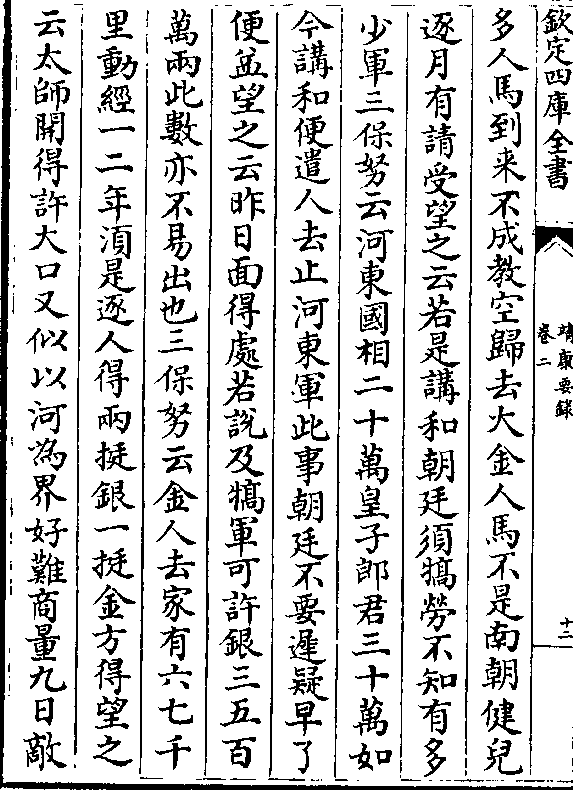 欽定四庫全書
靖康要録
卷二
十二
多人馬到来不成教空歸去大金人馬不是南朝健兒
逐月有請受望之云若是講和朝廷須犒勞不知有多
少軍三保努云河東國相二十萬皇子郎君三十萬如
今講和便遣人去止河東軍此事朝廷不要遲疑早了
便益望之云昨日面得處若說及犒軍可許銀三五百
萬兩此數亦不易出也三保努云金人去家有六七千
里動經一二年湏是逐人得兩挺銀一挺金方得望之
云太師開得許大口又似以河為界好難商量九日敵